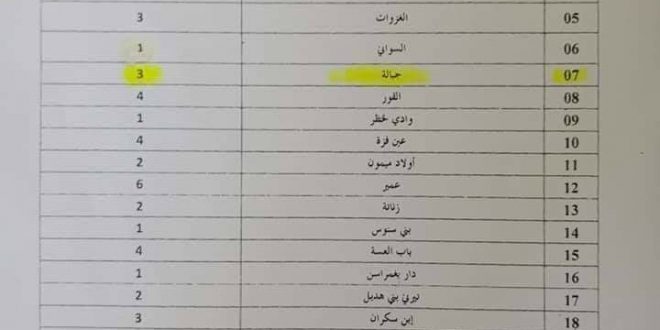 05 الغزوات 3
06 السواني 1
07 جبالة 3
08 الفور 4
09 وادي لخظر 1
10 عين فزة 4
11 أولاد ميمون 2
12 عمير 6
13 زناتة 2
14 بني سنوس 1
15 باب العسة 4
16 دار يغمراسن 1
17 تيرني بني هديل 2
18 إبن سكران 3